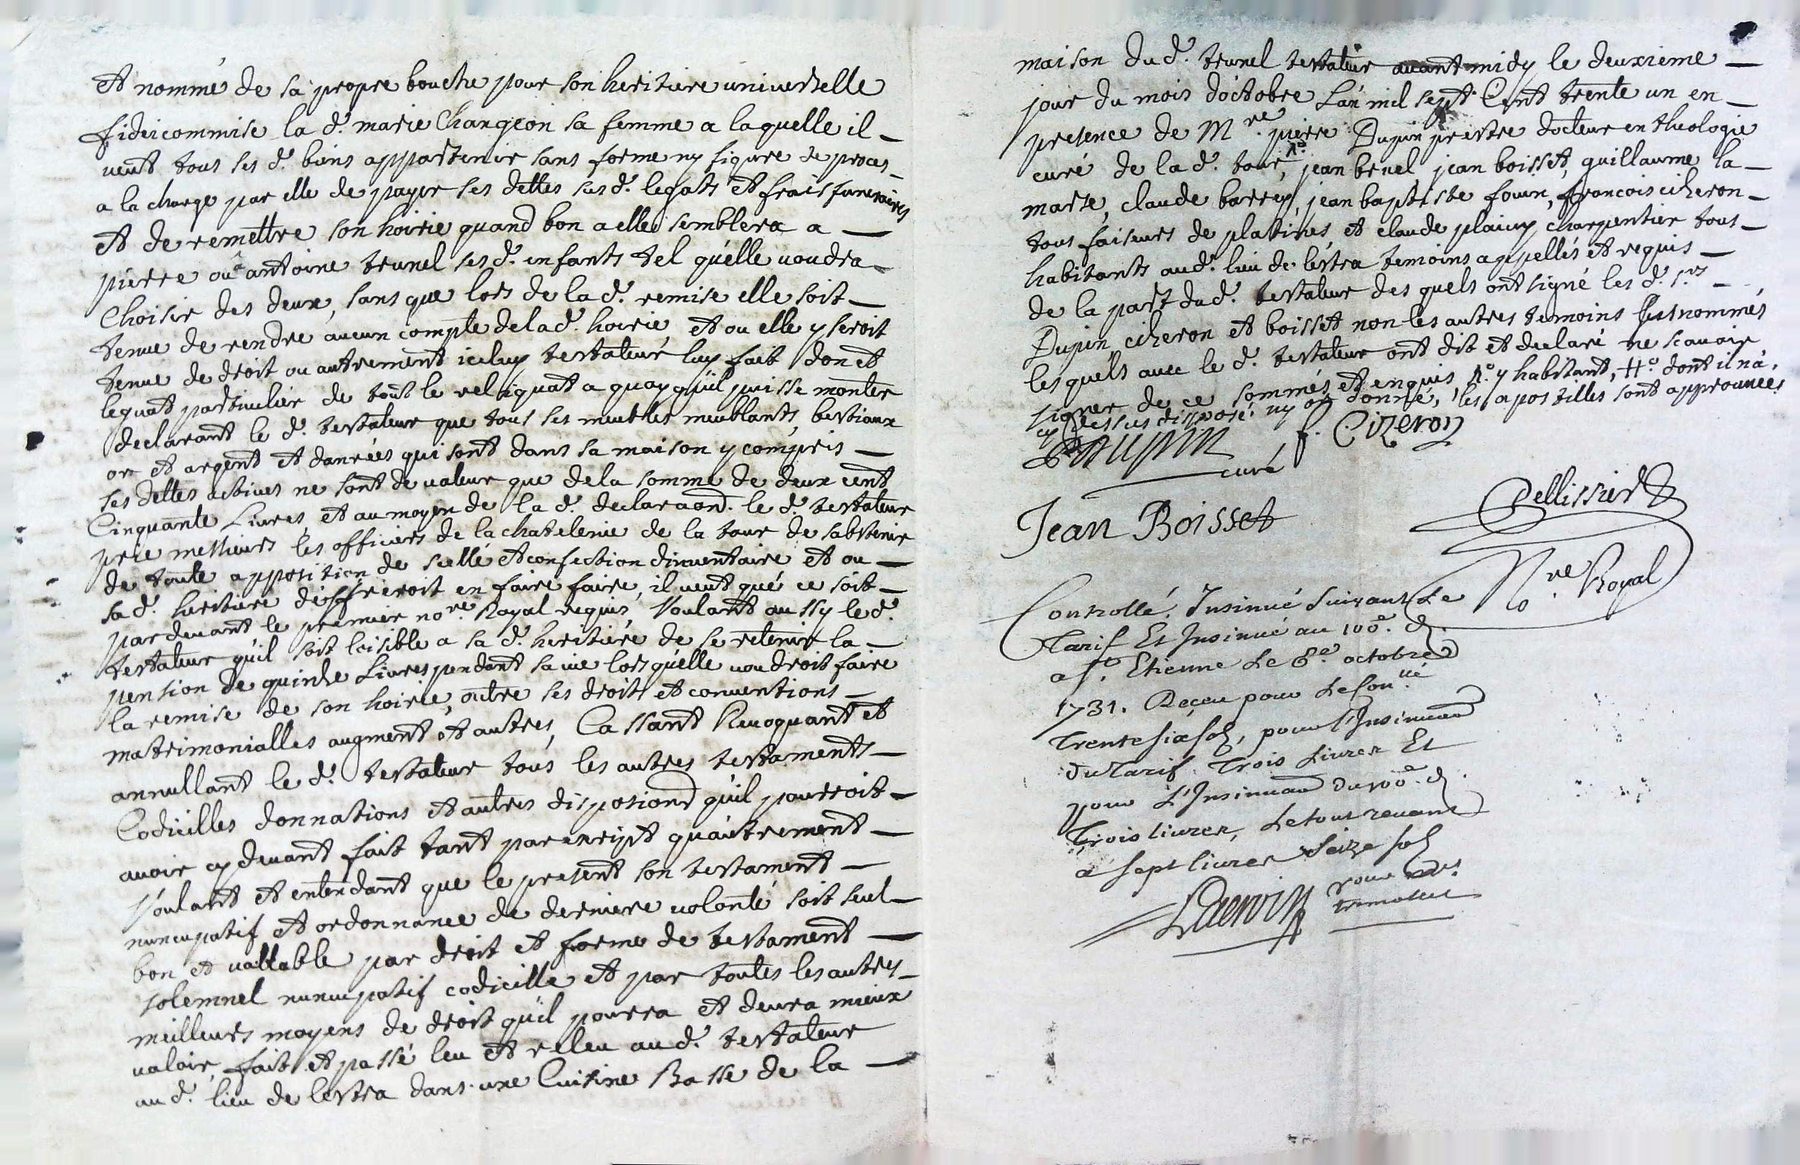 et nommé de sa propre bouche pour son heritiere universelle
fideicommise la d.e marie Changeon sa femme a laquelle il
veut tous ses d.s biens appartenir sans forme ny figure de proces
a la charge par elle de payer ses dettes sus d.s legats et frais funeraires
et de remettre son hoirie quand bon a elle semblera a
pierre ou antoine brunel ses d.s enfants tel qu'elle voudra
Choisir des deux, sans que lors de la d.e remise elle soit
tenue de rendre aucun compte de la d.e hoirie et ou elle y seroit
tenue de droit ou autrement iceluy testateur luy fait don et
leguat particulier de tout le reliquat a quoy qu'il puisse monter
declarant le d.t testateur que tous ses meubles meublants, bestiaux
or et argent et danrées qui sont dans sa maison y compris
ses dettes actives ne sont de valeur que de la somme de deux cent
Cinquante Livres et au moyen de la d.e declaraon. le d.t testateur
prie messieurs les officiers de la chatelenie de la tour de sabstenir
de toute apposition de scellé et confection dinventaire et ou
sa d.e heritiere desireroit en faire faire, il veut que ce soit
par devant le premier no.re Royal requis Voulant aussy le d.t
testateur qu'il soit loisible a sa d.e heritiére de se retenir la
pension de quinze Livres pendant sa vie lors qu'elle voudroit faire
la remise de son hoirie, outre ses droits et conventions
matrimonialles augment et autres, Cassant Revoquant et
annullant le d.t testateur tous les autres testaments
Codicilles donnations et autres disposions qu'il pourroit
avoir cy devant fait tant par escript qu'autrement
Voulant et entendant que le present son testament
nuncupatif et ordonnance de derniere volonté soit seul
bon et vallable par droit et forme de testament
solemnel nuncupatif codicille et par toutes les autres
meilleurs moyens de droit qu'il pourra et devra mieux
valoir, fait et passé leu et releu au d.t testateur
au d.t lieu de lestra dans une Cuisine Basse de la
maison du d.t brunel testateur avant midy le deuxieme
jour du mois d'octobre L'an mil sept Cent trente un en
presence de M.re pierre Dupin prestre docteur en theologie
curé de la d.e tour, jean brnel jean boisset, guillaume la
marte, claude barrey, jean baptiste fourn, francois ciheron
tous faiseurs de platines et claude plainy charpentier tous
habitants au d.t lieu de lestra temoins appellés et requis
de la part du d.t testateur des quels ont signé les d.s s.rs
Dupin ciheron et boisset non les autres temoins susnommés
lesquels avec le d.t testateur ont dit et declaré ne scavoir
signer de ce sommés et enquis, y habitant, dont il n'a
cy dessus disposé ny donné, les apostilles sont approuvées
Dupin
curé
f. Cizeron
Jean Boisset
Pellissier
No.re Royal
Controllé. Insinué Suivant Le
Tarif Et Insinué au 100.e d.
a s.t Etienne Le 8.e octobre
1731. Receu pour Le Con.lle
Trente six sols, pour l'Insinuaon
du Tarif. Trois Livres Et
pour L'Insinuaon du 100.e d.
Trois livres, Le tout revenant
a sept livres Seize sols